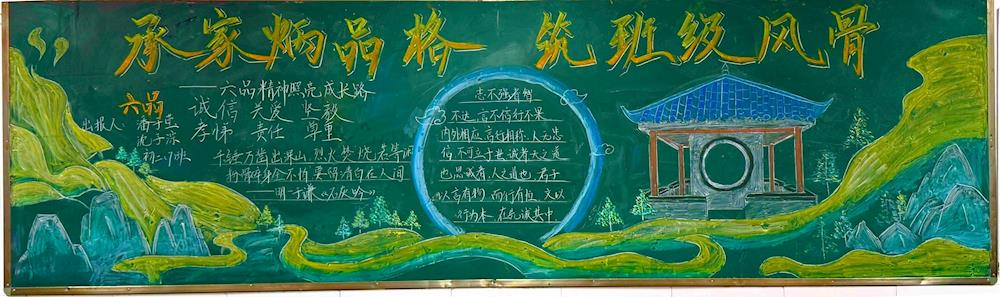 承家炳品格 筑班级风骨
——六品精神照亮成长路
六品
诚信 关爱 坚毅
孝悌 责任 尊重
出报人：
初二、9班
千锤万凿出深山，烈火焚烧若等闲
粉骨碎身全不怕，要留清白在人间
——明 于谦《石灰吟》
志不强者智
不达，言不信行不果
内外相应，言行相称，人无忠
信，不可立于世，诚者天之道
也，思诚者，人之道也，君子
以言有物，而行有恒，文以
行为本，在先诚其中